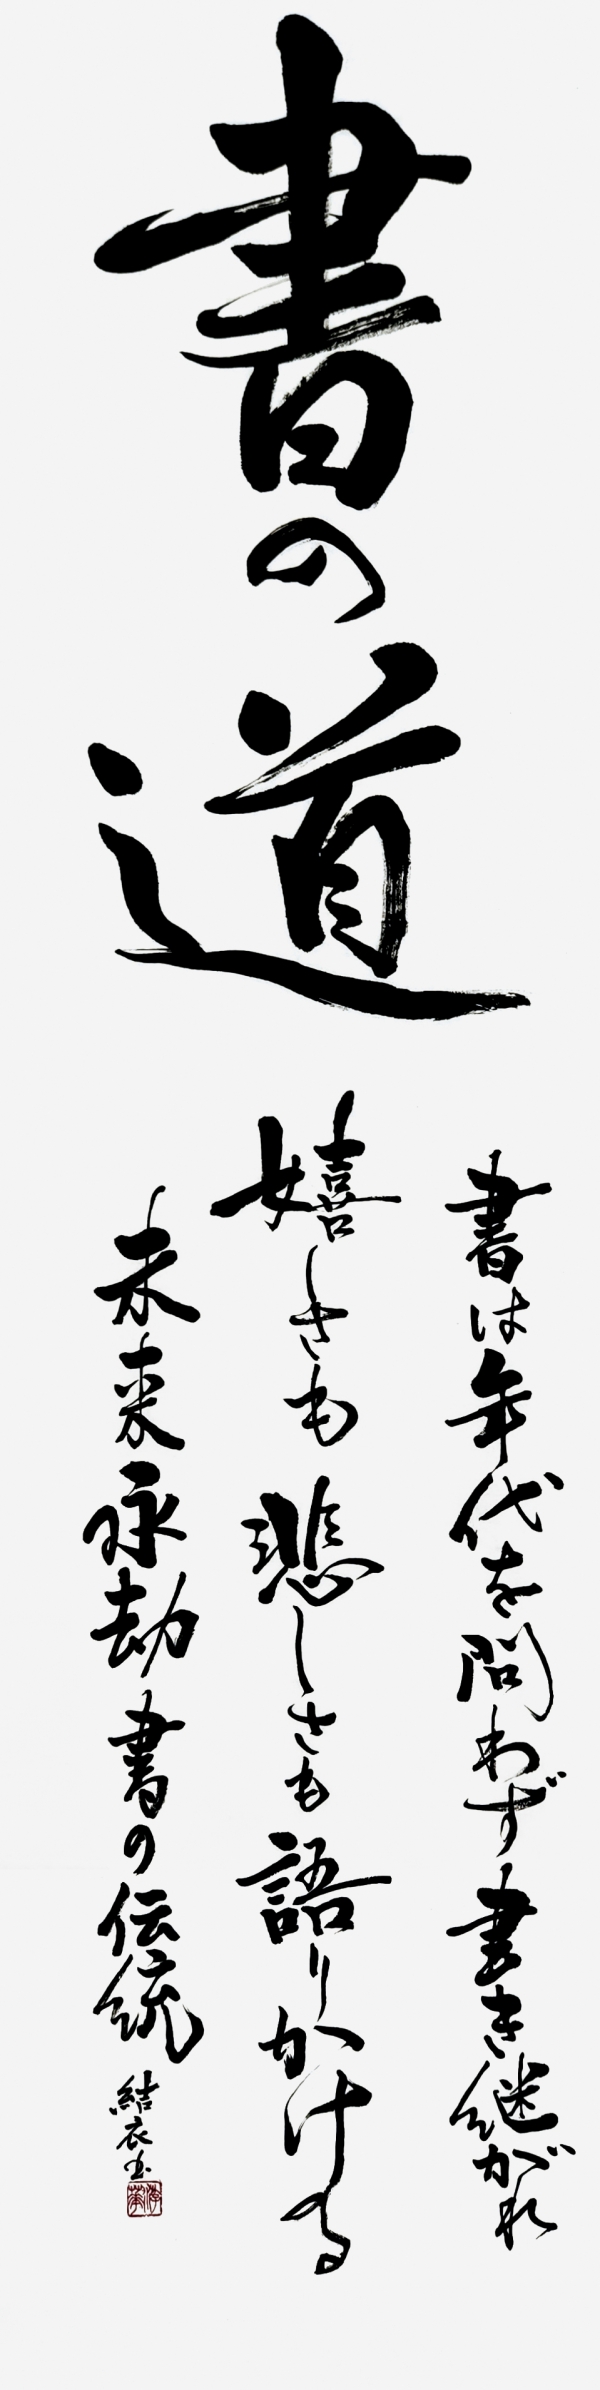 書の道
書は年代を問わず書き継がれ
嬉しさも悲しさも語りかける
未来永劫書の伝統
結衣書